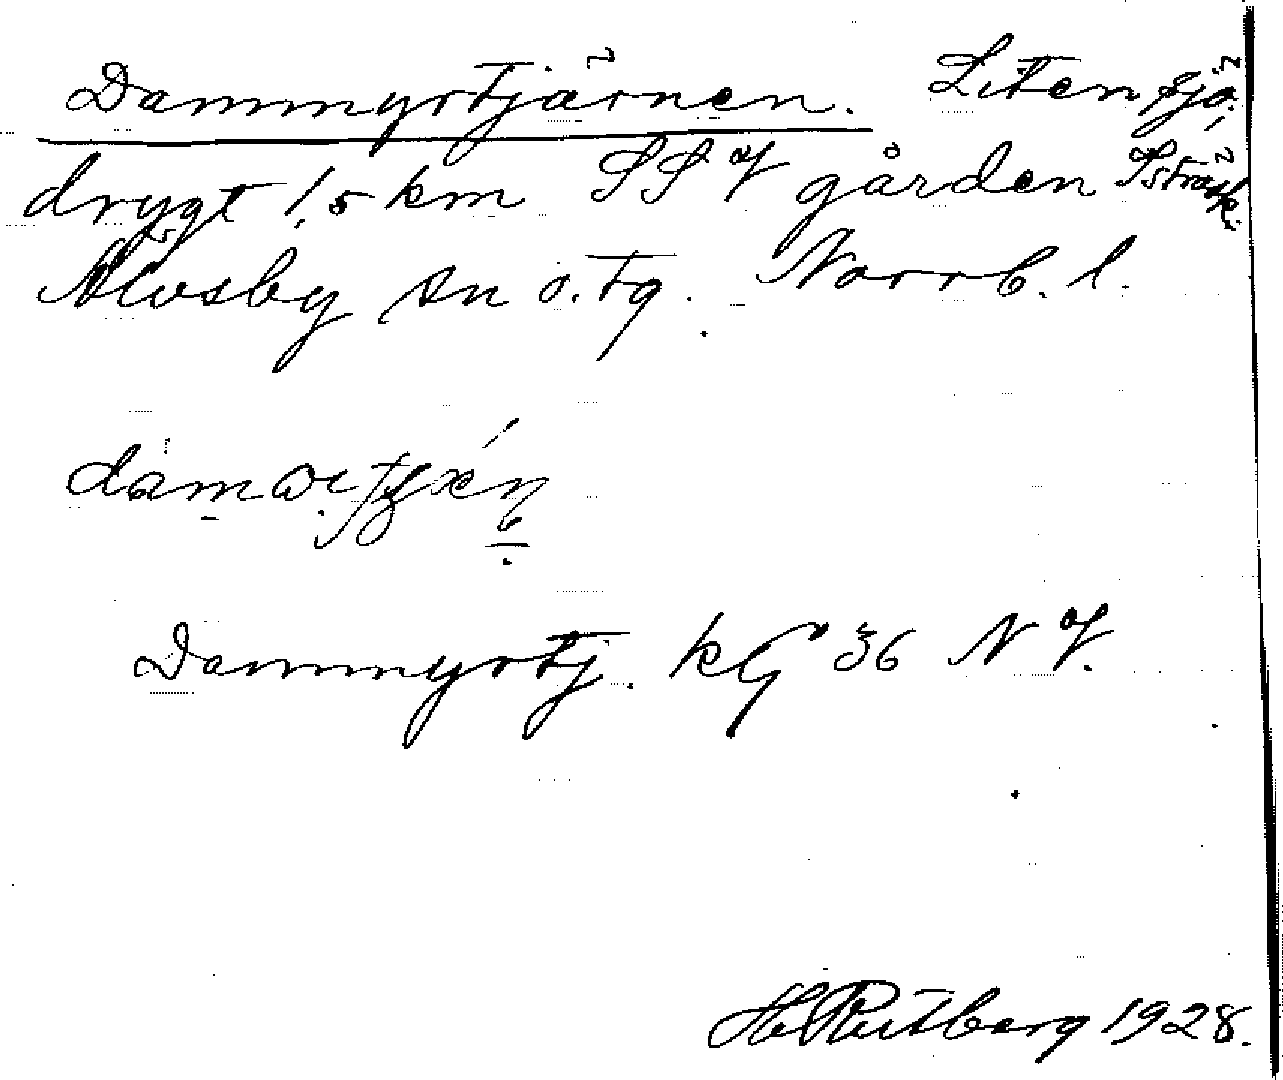 Dammyrtjärnen. Liten sjö,
drygt 1,5 km SSV gården Isträsk.
Älvsby sn o. tg. Norrb. l.
Dammyrtj. kG 36 NV.
H. Rutberg 1928.